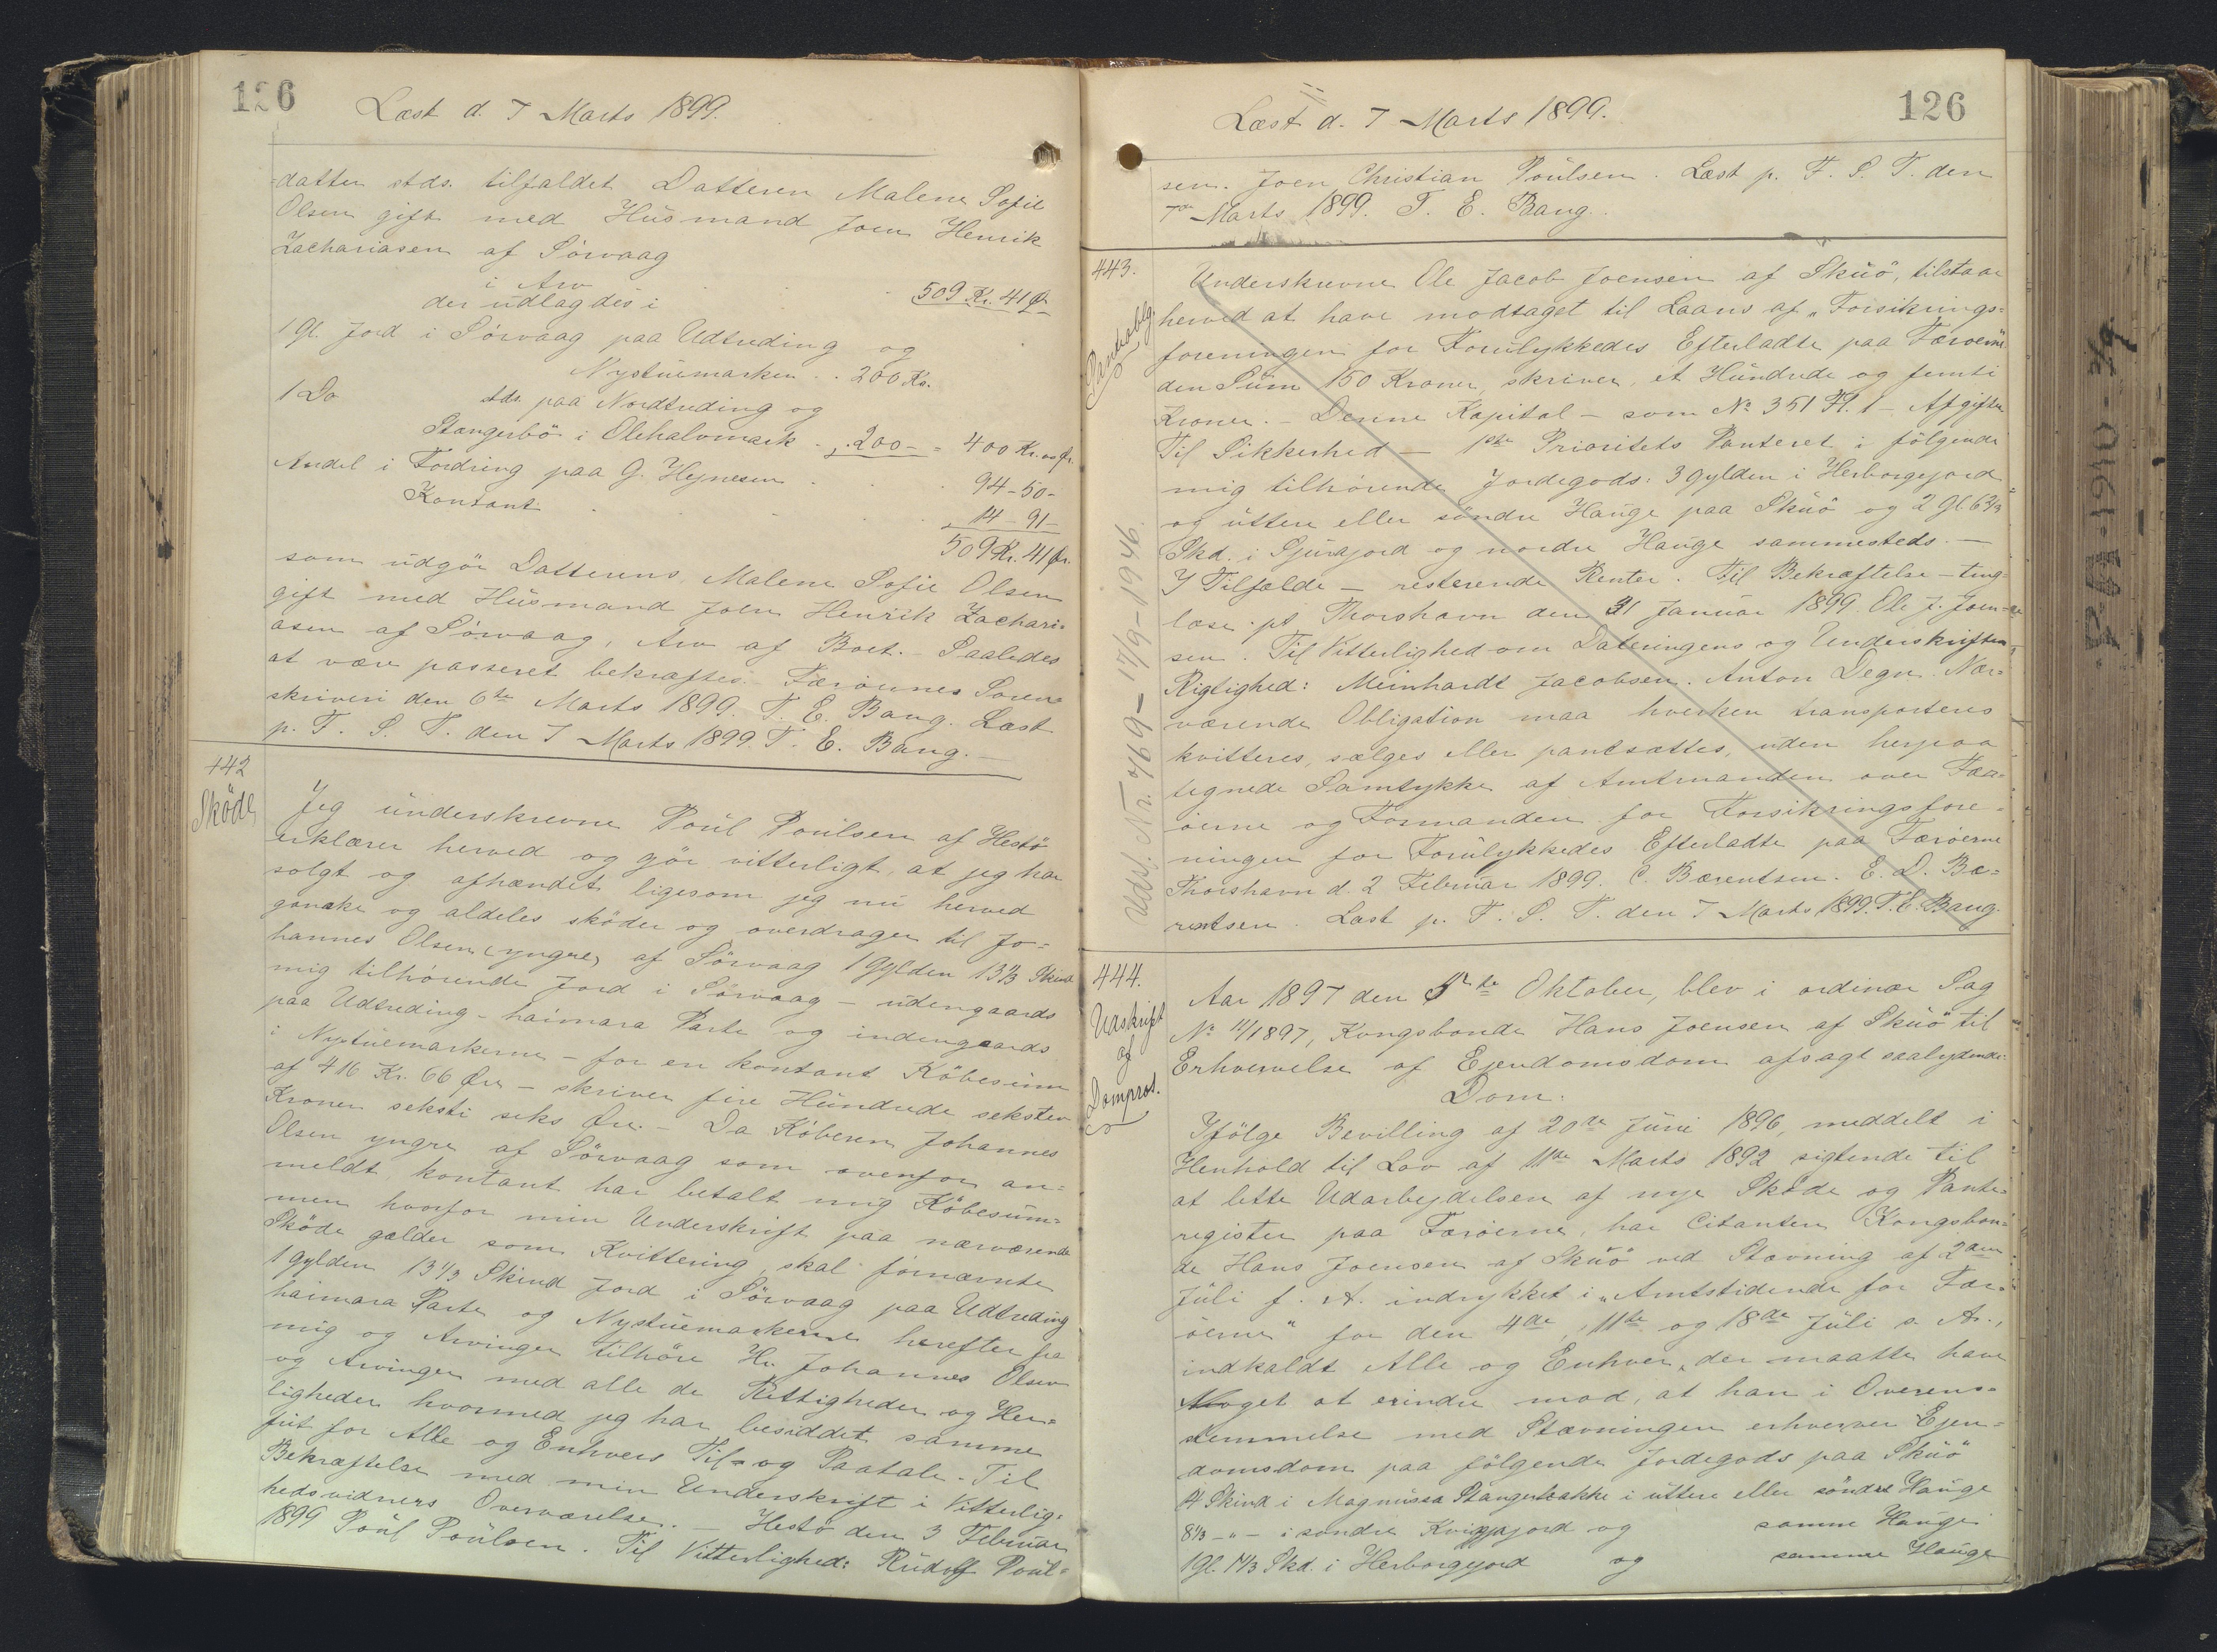 126
Læst d. 7 Marts 1899.
datter stds. tilfaldet Datteren Malene Sofie
Olsen gift med Husmand Joen Henrik
Zachariasen af Sörvaag
i Arv
509 Kr. 41 Ør
der udlagdes i
1 Gl. Jord i Sörvaag paa Udtreding og
Nystuemarken . . 200 Kr.
1 Do stds. paa Nordtreding og
Stangerbö i Olehalvmark - . 200 - = 400 Kr. 00 Ør.
Andel i Fordring paa G. Hejnesen 94 - 50 -
Kontant 14 - 91 -
509 Kr. 41 Ør.
som udgör Datterens Malene Sofie Olsen
gift med Husmand Joen Henrik Zachari=
asen af Sörvaag, Arv af Boet. - Saaledes
at være passeret bekræftes. Færøernes Soren=
skriveri den 6te Marts 1899. T. E. Bang. Læst
p. F. S. T. den 7 Marts 1899. T. E. Bang. -
442
Sköde
Jeg underskrevne Poul Poulsen af Hestö
erklærer herved og gör vitterligt, at jeg har
solgt og afhændet ligesom jeg nu herved
ganske og aldeles sköder og overdrager til Jo=
hannes Olsen (yngre) af Sörvaag 1 Gylden 13 1/3 Skind
mig tilhörende Jord i Sörvaag - udengaards
paa Udtreding - haimara Parte og indengaards
i Nystuemarkerne - for en kontant Köbesum
af 416 Kr. 66 Øre - skriver fire Hundrede seksten
Kroner seksti seks Øre. - Da Köberen Johannes
Olsen yngre af Sörvaag som ovenfor an=
meldt kontant har betalt mig Köbesum=
men hvorfor min Underskrift paa nærværende
Sköde gælder som Kvittering, skal fornævnte
1 Gylden 13 1/3 Skind Jord i Sörvaag paa Udtreding
haimara Parte og Nystuemarkerne herefter fra
mig og Arvinger tilhöre Hr. Johannes Olsen
og Arvinger med alle de Rettigheder og Her=
ligheder hvormed jeg har besiddet samme
frit for Alle og Enhvers Til- og Paatale. Til
Bekræftelse med min Underskrift i Vitterlig=
hedsvidners Overværelse. - Hestö den 3 Februar
1899 Poul Poulsen. Til Vitterlighed: Rudolf Poul=
126
Læst d. 7 Marts 1899.
sen. Joen Christian Poulsen. Læst p. F. S. T. den
7de Marts 1899. T. E. Bang.
443.
Pantoblg.
Underskrevne Ole Jacob Joensen af Skuö, tilstaar
herved at have modtaget til Laans af "Forsikrings=
foreningen for Forulykkedes Efterladte paa Færøerne"
den Sum 150 Kroner, skriver, et Hundrede og femti
Kroner. - Denne Kapital - som No 351 Fl. 1 - Afgifter
Til Sikkerhed - 1ste Prioritets Panteret i fölgende
mig tilhörende Jordegods: 3 Gylden i Herborgejord
og uttere eller söndre Hauge paa Skuö og 2 Gl. 6 2/3
Skd. i Gjurajord og nordre Hauge sammesteds. -
I Tilfælde - resterende Renter. Til Bekræftelse - ting=
læse. pt Thorshavn den 31 Januar 1899. Ole J. Joen=
sen. Til Vitterlighed om Dateringens og Underskriftens
Rigtighed: Meinhardt Jacobsen. Anton Degn. Nær=
værende Obligation maa hverken transporteres
kvitteres, sælges eller pantsættes, uden herpaa
tegnede Samtykke af Amtmanden over Fær=
öerne og Formanden for Forsikringsfore=
ningen for Forulykkedes Efterladte paa Færöerne
Thorshavn d. 2 Februar 1899. C. Bærentsen. E. D. Bæ=
rentsen. Læst p. F. S. T. den 7 Marts 1899. T. E. Bang.
Udsl. Nr. 469 - 17/9 - 1946.
444.
Udskrift
af
Dompros.
Aar 1897 den 5te Oktober, blev i ordinær Sag
No 11/1897, Kongsbonde Hans Joensen af Skuö til
Erhvervelse af Ejendomsdom afsagt saalydende
Dom:
Ifölge Bevilling af 20de Juni 1896, meddelt i
Henhold til Lov af 11te Marts 1892 sigtende til
at lette Udarbejdelsen af nye Sköde og Pante=
register paa Færöerne, har Citanten Kongsbon=
de Hans Joensen af Skuö ved Stævning af 2den
Juli f. A. indrykket i "Amtstidende for Fær=
öerne" for den 4de, 11te og 18de Juli s. Ar.,
indkaldt Alle og Enhver, der maatte have
Noget at erindre mod, at han i Overens=
stemmelse med Stævningen erhverver Ejen=
domsdom paa fölgende Jordegods paa Skuö
4 Skind i Magnussa Stangerbakke i uttere eller söndre Hauge
8 1/3 - " - i söndre Kviggjajord og samme Hauge
1 Gl. 1 1/3 Skd. i Herborgejord og samme Hauge